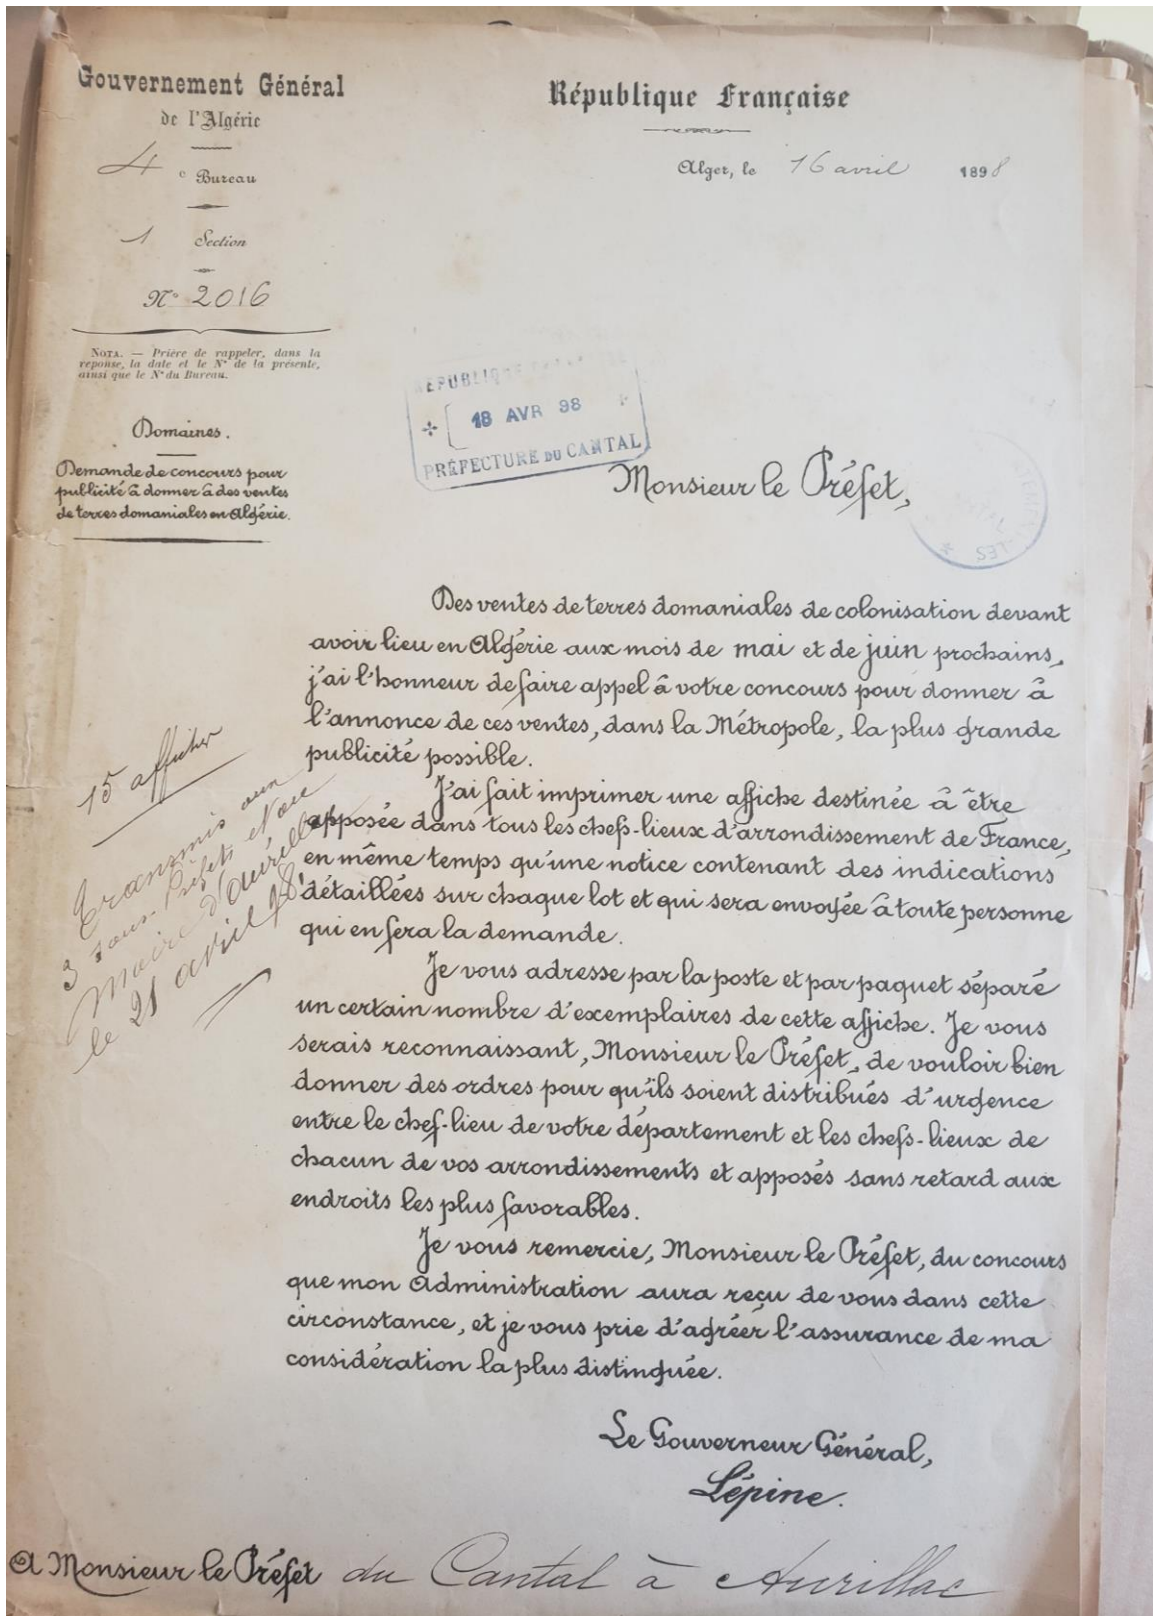 Gouvernement Général
de l'Algérie
4e Bureau
1 Section
N° 2016
NOTA. — Prière de rappeler, dans la
réponse, la date et le N° de la présente,
ainsi que le N° du Bureau.
Domaines.
Demande de concours pour
publicité à donner à des ventes
de terres domaniales en Algérie.
République Française
Alger, le 16 avril 1898
RÉPUBLIQUE
18 AVR 98
PRÉFECTURE DU CANTAL
Monsieur le Préfet,
Des ventes de terres domaniales de colonisation devant
avoir lieu en Algérie aux mois de mai et de juin prochains,
j'ai l'honneur de faire appel à votre concours pour donner à
l'annonce de ces ventes, dans la Métropole, la plus grande
publicité possible.
J'ai fait imprimer une affiche destinée à être
apposée dans tous les chefs-lieux d'arrondissement de France,
en même temps qu'une notice contenant des indications
détaillées sur chaque lot et qui sera envoyée à toute personne
qui en fera la demande.
Je vous adresse par la poste et par paquet séparé
un certain nombre d'exemplaires de cette affiche. Je vous
serais reconnaissant, Monsieur le Préfet, de vouloir bien
donner des ordres pour qu'ils soient distribués d'urgence
entre le chef-lieu de votre département et les chefs-lieux de
chacun de vos arrondissements et apposés sans retard aux
endroits les plus favorables.
Je vous remercie, Monsieur le Préfet, du concours
que mon Administration aura reçu de vous dans cette
circonstance, et je vous prie d'agréer l'assurance de ma
considération la plus distinguée.
Le Gouverneur Général,
Lépine.
A Monsieur le Préfet du Cantal à Aurillac
15 affiches
Transmis aux
3 sous-Préfets et au
Maire d'Aurillac
le 21 avril 98